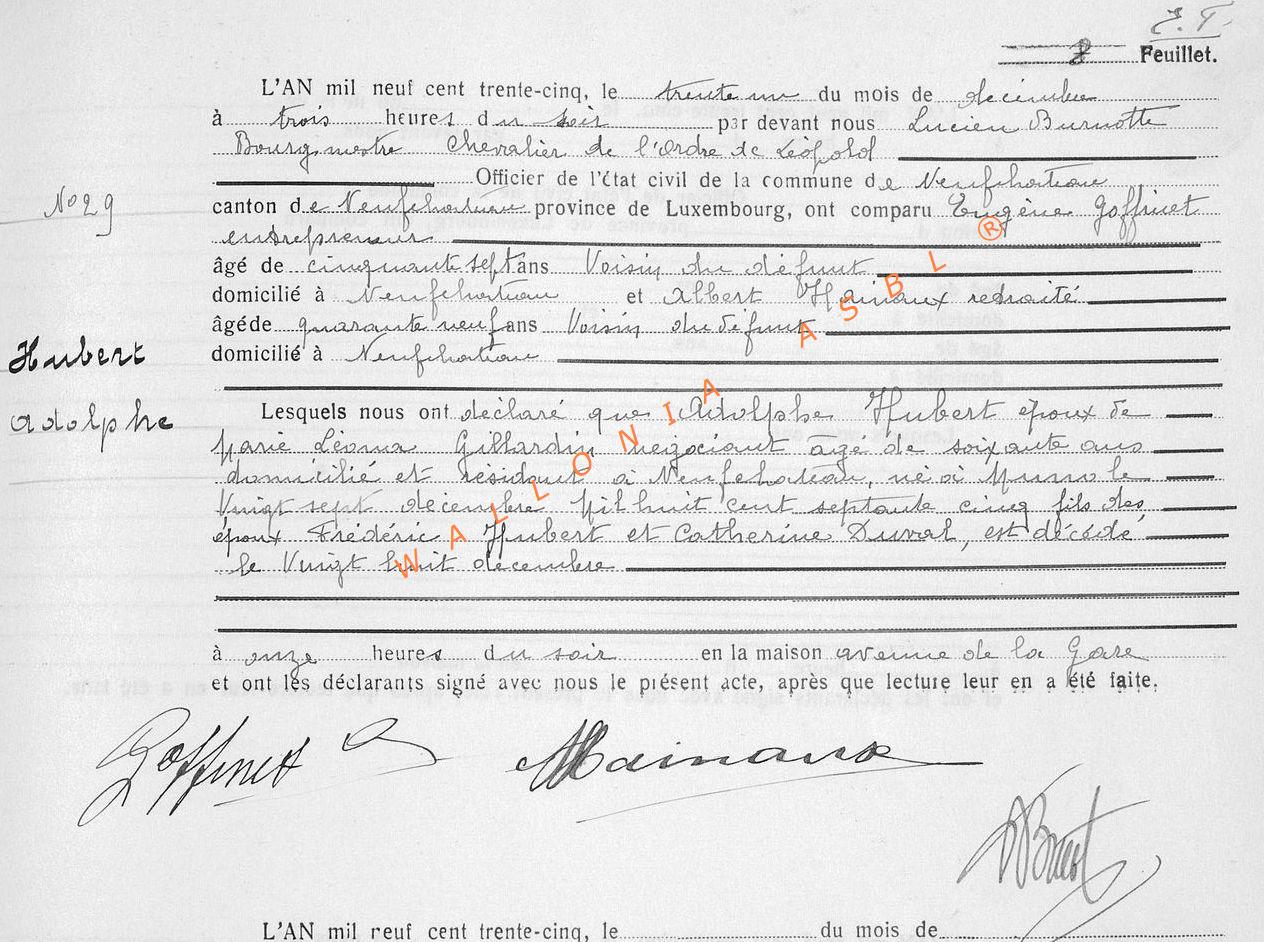 E. T.
8 Feuillet.
L'AN mil neuf cent trente-cinq, le trente un du mois de décembre
à trois heures du soir par devant nous Lucien Burnotte
Bourgmestre Chevalier de l'Ordre de Léopold
Officier de l'état civil de la commune de Neufchateau
N° 29
canton de Neufchateau province de Luxembourg, ont comparu Eugène Goffinet
entrepreneur
âgé de cinquante sept ans Voisin du défunt
domicilié à Neufchateau et Albert Hainaux retraité
âgé de quarante neuf ans Voisin du défunt
domicilié à Neufchateau
Hubert
Adolphe
Lesquels nous ont déclaré que Adolphe Hubert époux de
Marie Léonia Gillardin négociant âgé de soixante ans
domicilié et résidant à Neufchateau, né à Muno le
Vingt sept décembre Mil huit cent septante cinq fils des
époux Frédéric Hubert et Catherine Duval, est décédé
le Vingt huit décembre
à onze heures du soir en la maison avenue de la Gare
et ont les déclarants signé avec nous le présent acte, après que lecture leur en a été faite.
Goffinet Hainaux
WALLONIA ASBL ®
L'AN mil neuf cent trente-cinq, le du mois de